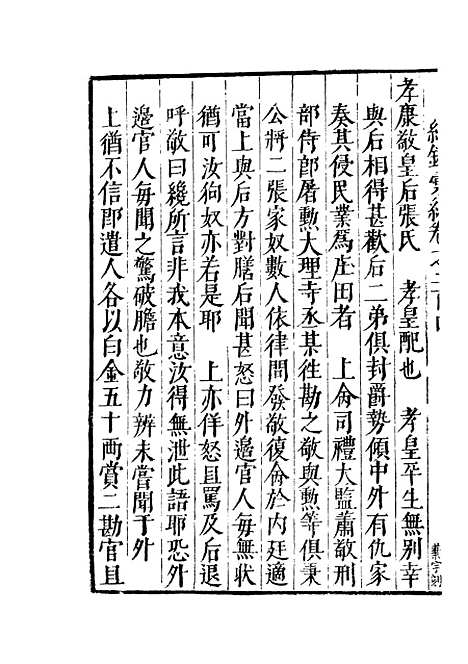 孝康敬皇后張氏　孝皇配也　孝皇平生無別幸
與后相得甚歡后二弟俱封爵勢傾中外有仇家
奏其侵民業為庄田者　上命司禮大監蕭敬刑
部侍郎屠勲大理寺丞某徃勘之敬與勲等俱秉
公將二張家奴數人依律問發敬復命於内廷適
當上與后方對膳后聞甚怒曰外邉官人每無狀
猶可汝狗奴亦若是耶　上亦佯怒且罵及后退
呼敬曰纔所言非我本意汝得無泄此語耶恐外
邉官人每聞之驚破膽也敬力辨未嘗聞于外
上猶不信即遣人各以白金五十兩賞二勘官且